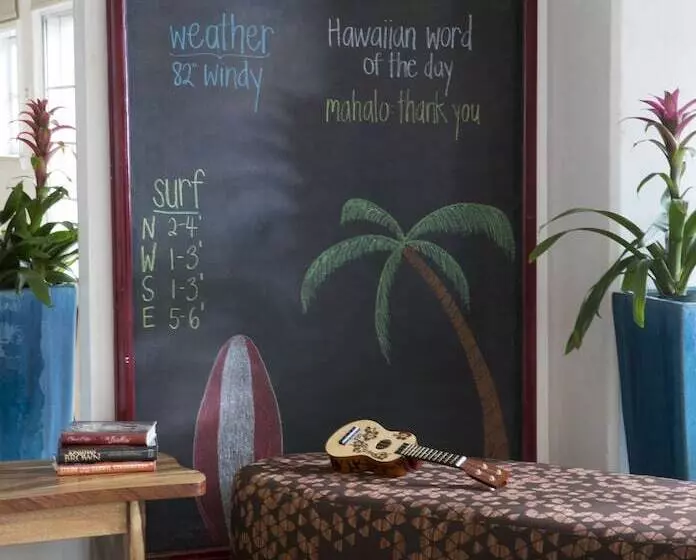 weather
82° windy
Hawaiian word
of the day
mahalo: thank you
surf
N 2-4'
W 1-3'
S 1-3'
E 5-6'
BROWN